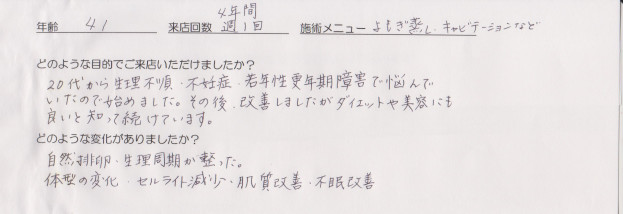 年齢 41 来店回数 4年間 週1回 施術メニュー よもぎ蒸し、キャビテーションなど
どのような目的でご来店いただけましたか？
20代から生理不順・不妊症・若年性更年期障害で悩んで
いたので始めました。その後、改善しましたがダイエットや美容にも
良いと知って続けています。
どのような変化がありましたか？
自然排卵・生理周期が整った。
体型の変化・セルライト減少・肌質改善・不眠改善